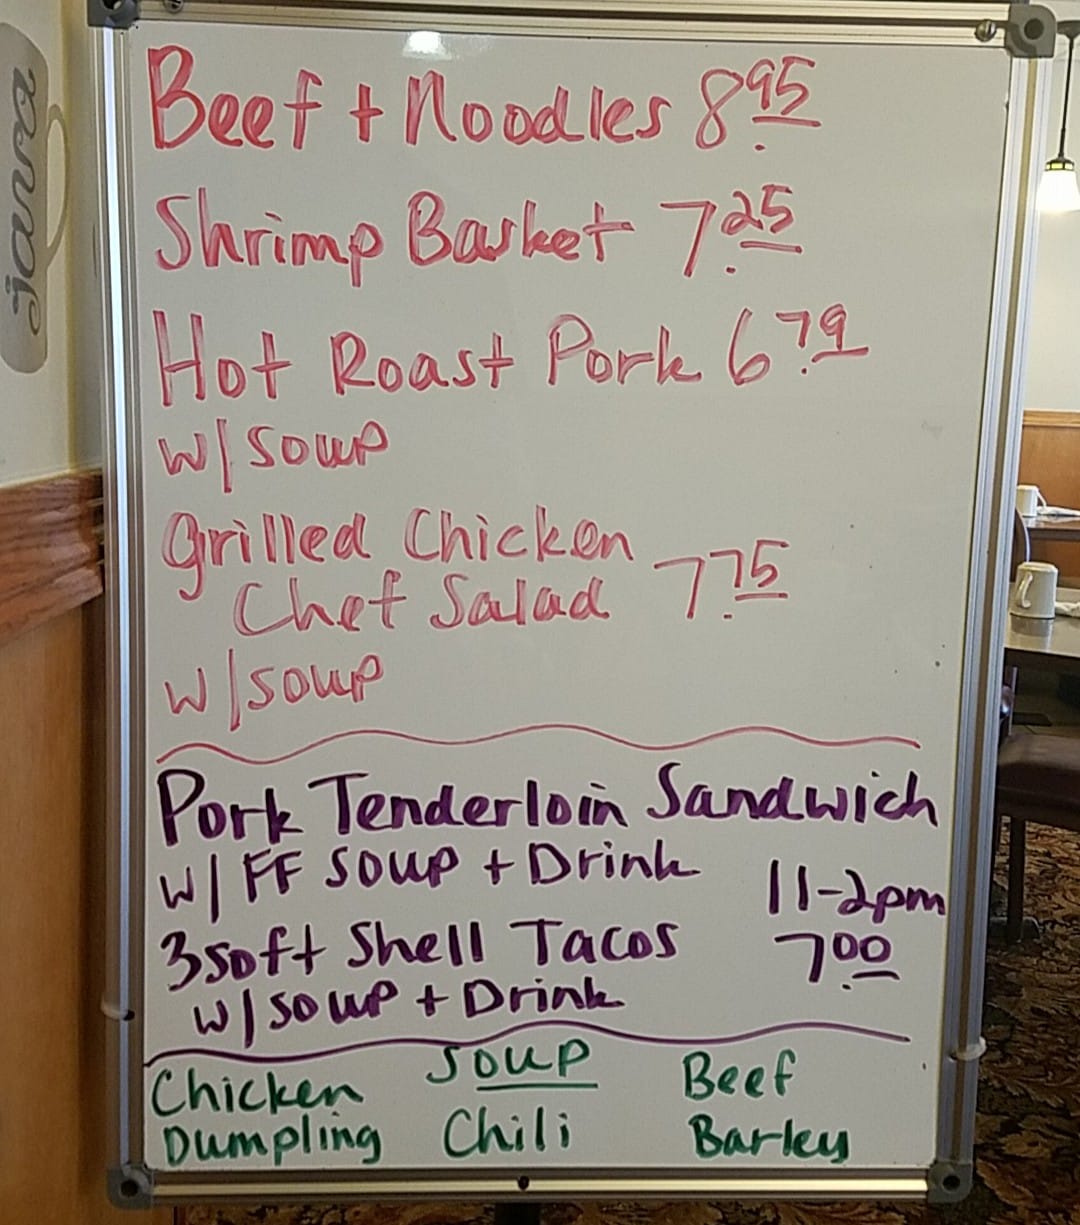 Beef + Noodles 8.95
Shrimp Basket 7.25
Hot Roast Pork 6.79
w/ soup
Grilled Chicken
Chef Salad 7.75
w/ soup
Pork Tenderloin Sandwich
w/ FF soup + Drink 11-2pm
3 soft shell Tacos 7.00
w/ soup + Drink
Soup
Chicken Dumpling
Chili
Beef Barley
java